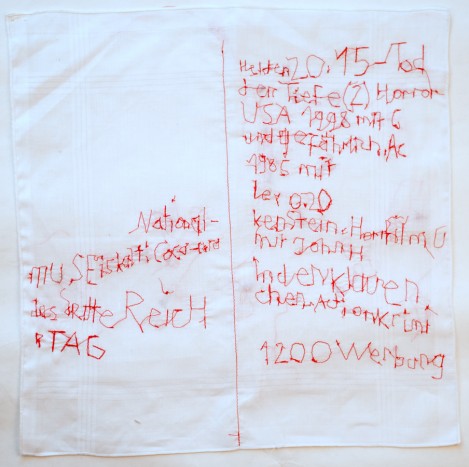 National-
MU, SEiskalt: Coca-
das dritte REicH
TAG
Helden 20.15-Tod
der Tiefe (2) Horror
USA 1998 mit G
und gefährlich, Ac
1985 mit
Ler 0.20
kenstein, Horrorfilm, U
mit John H
In den Klauen
chen, Actionkrimi
1200 Werbung